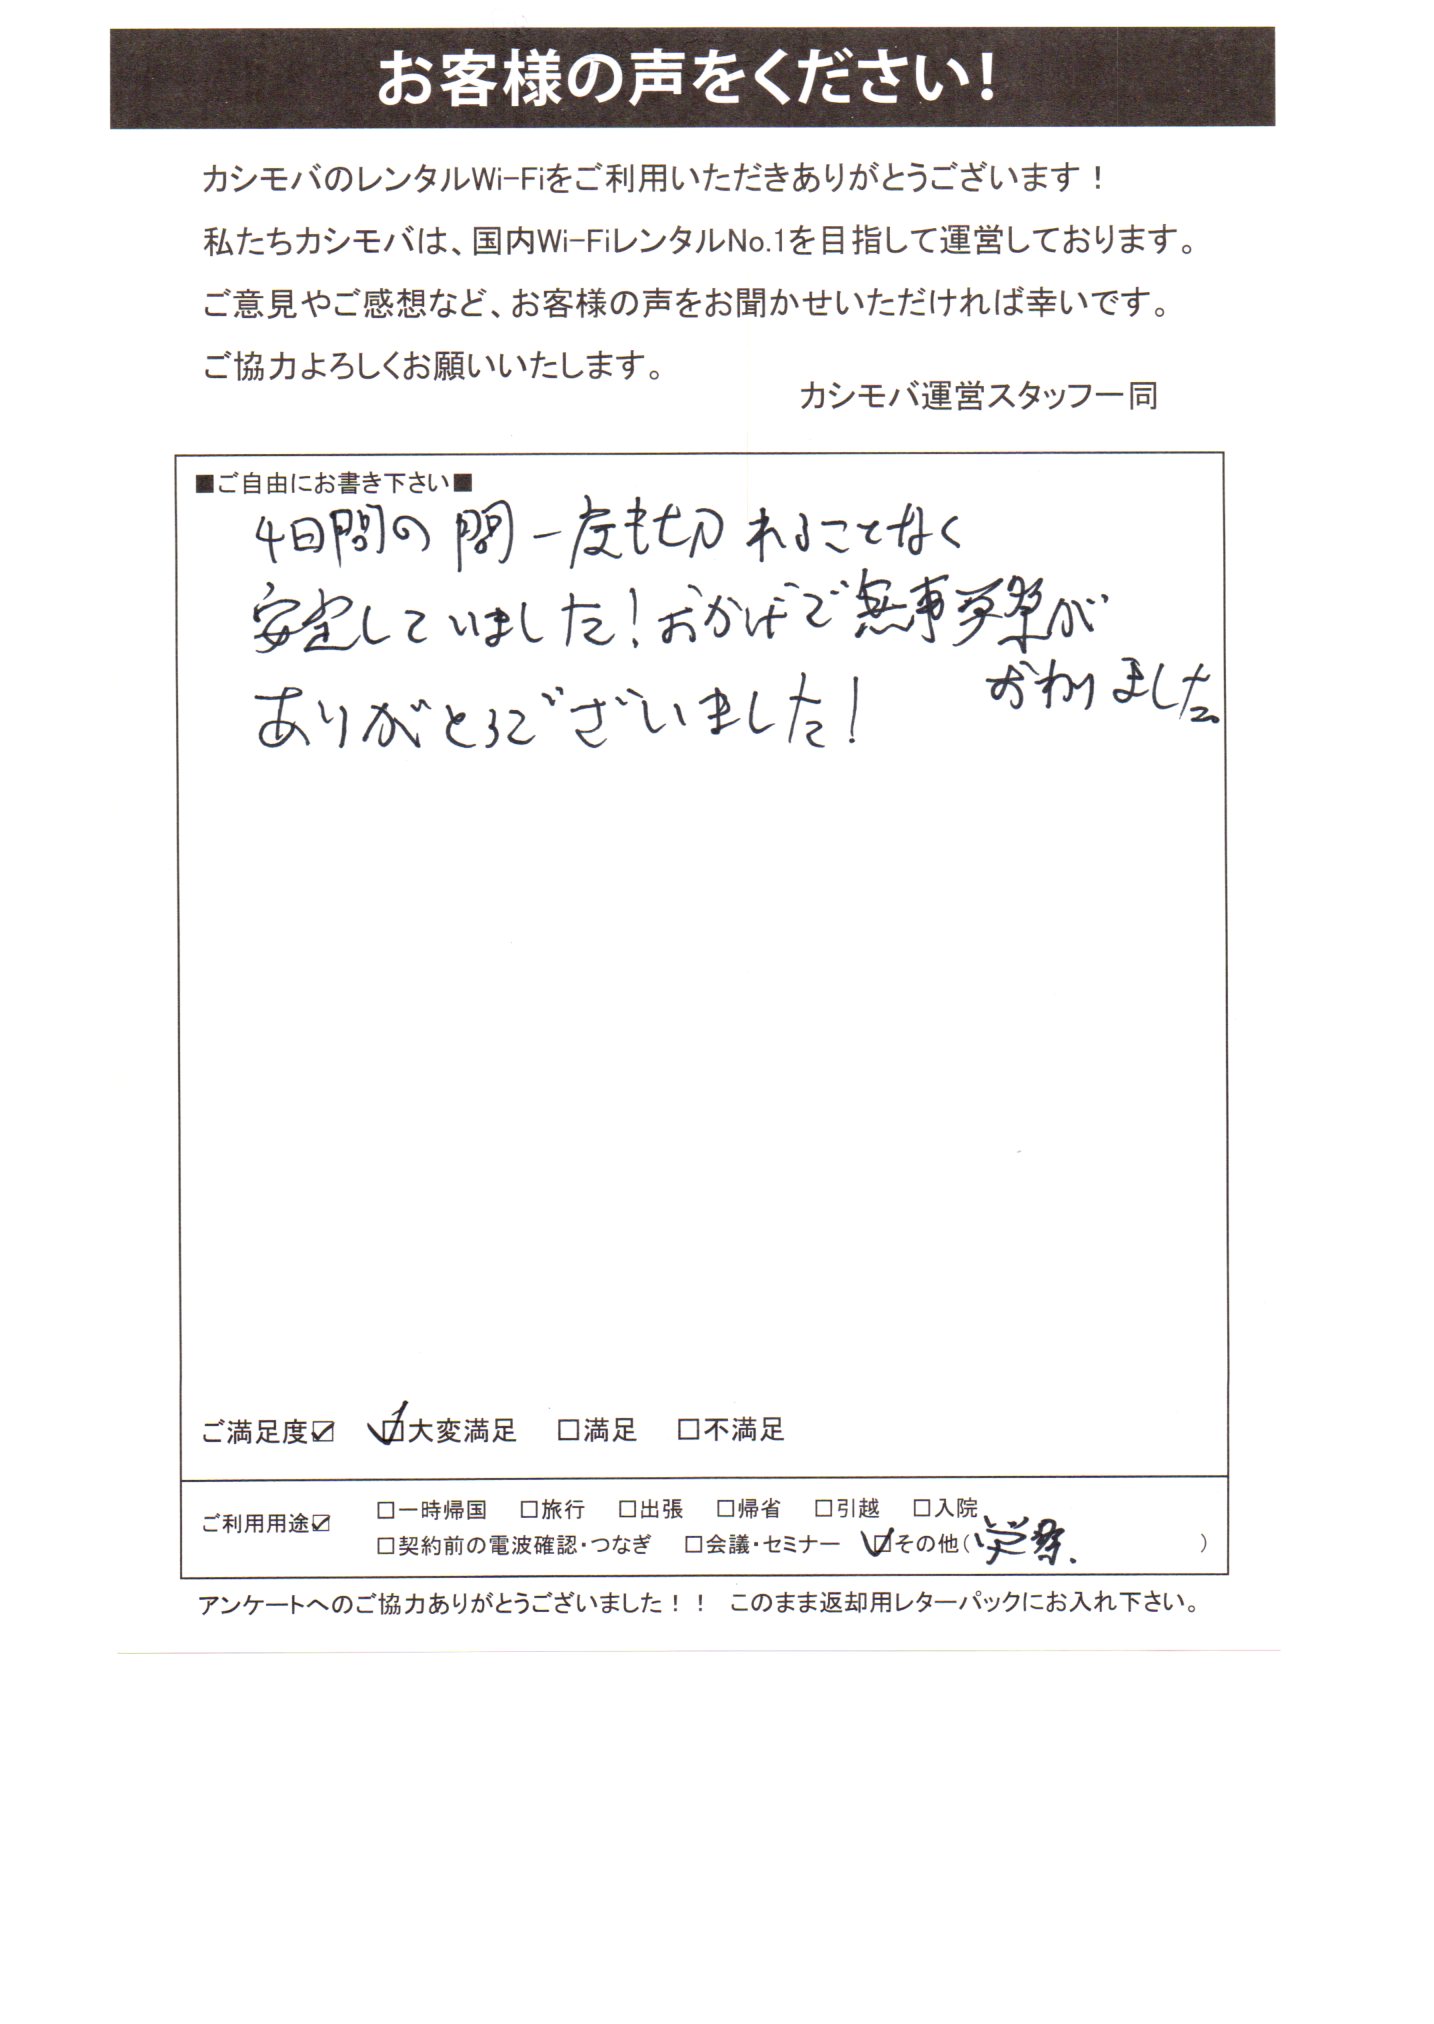 お客様の声をください!
カシモバのレンタルWi-Fiをご利用いただきありがとうございます！
私たちカシモバは、国内Wi-FiレンタルNo.1を目指して運営しております。
ご意見やご感想など、お客様の声をお聞かせいただければ幸いです。
ご協力よろしくお願いいたします。
カシモバ運営スタッフ一同
■ご自由にお書き下さい■
4日間の間一度も切れることなく
安定していました！おかげで無事学祭が
おわりました。
ありがとうございました！
ご満足度☑ ☑大変満足 □満足 □不満足
ご利用用途☑ □一時帰国 □旅行 □出張 □帰省 □引越 □入院
□契約前の電波確認・つなぎ □会議・セミナー ☑その他(学祭. )
アンケートへのご協力ありがとうございました！！ このまま返却用レターパックにお入れ下さい。